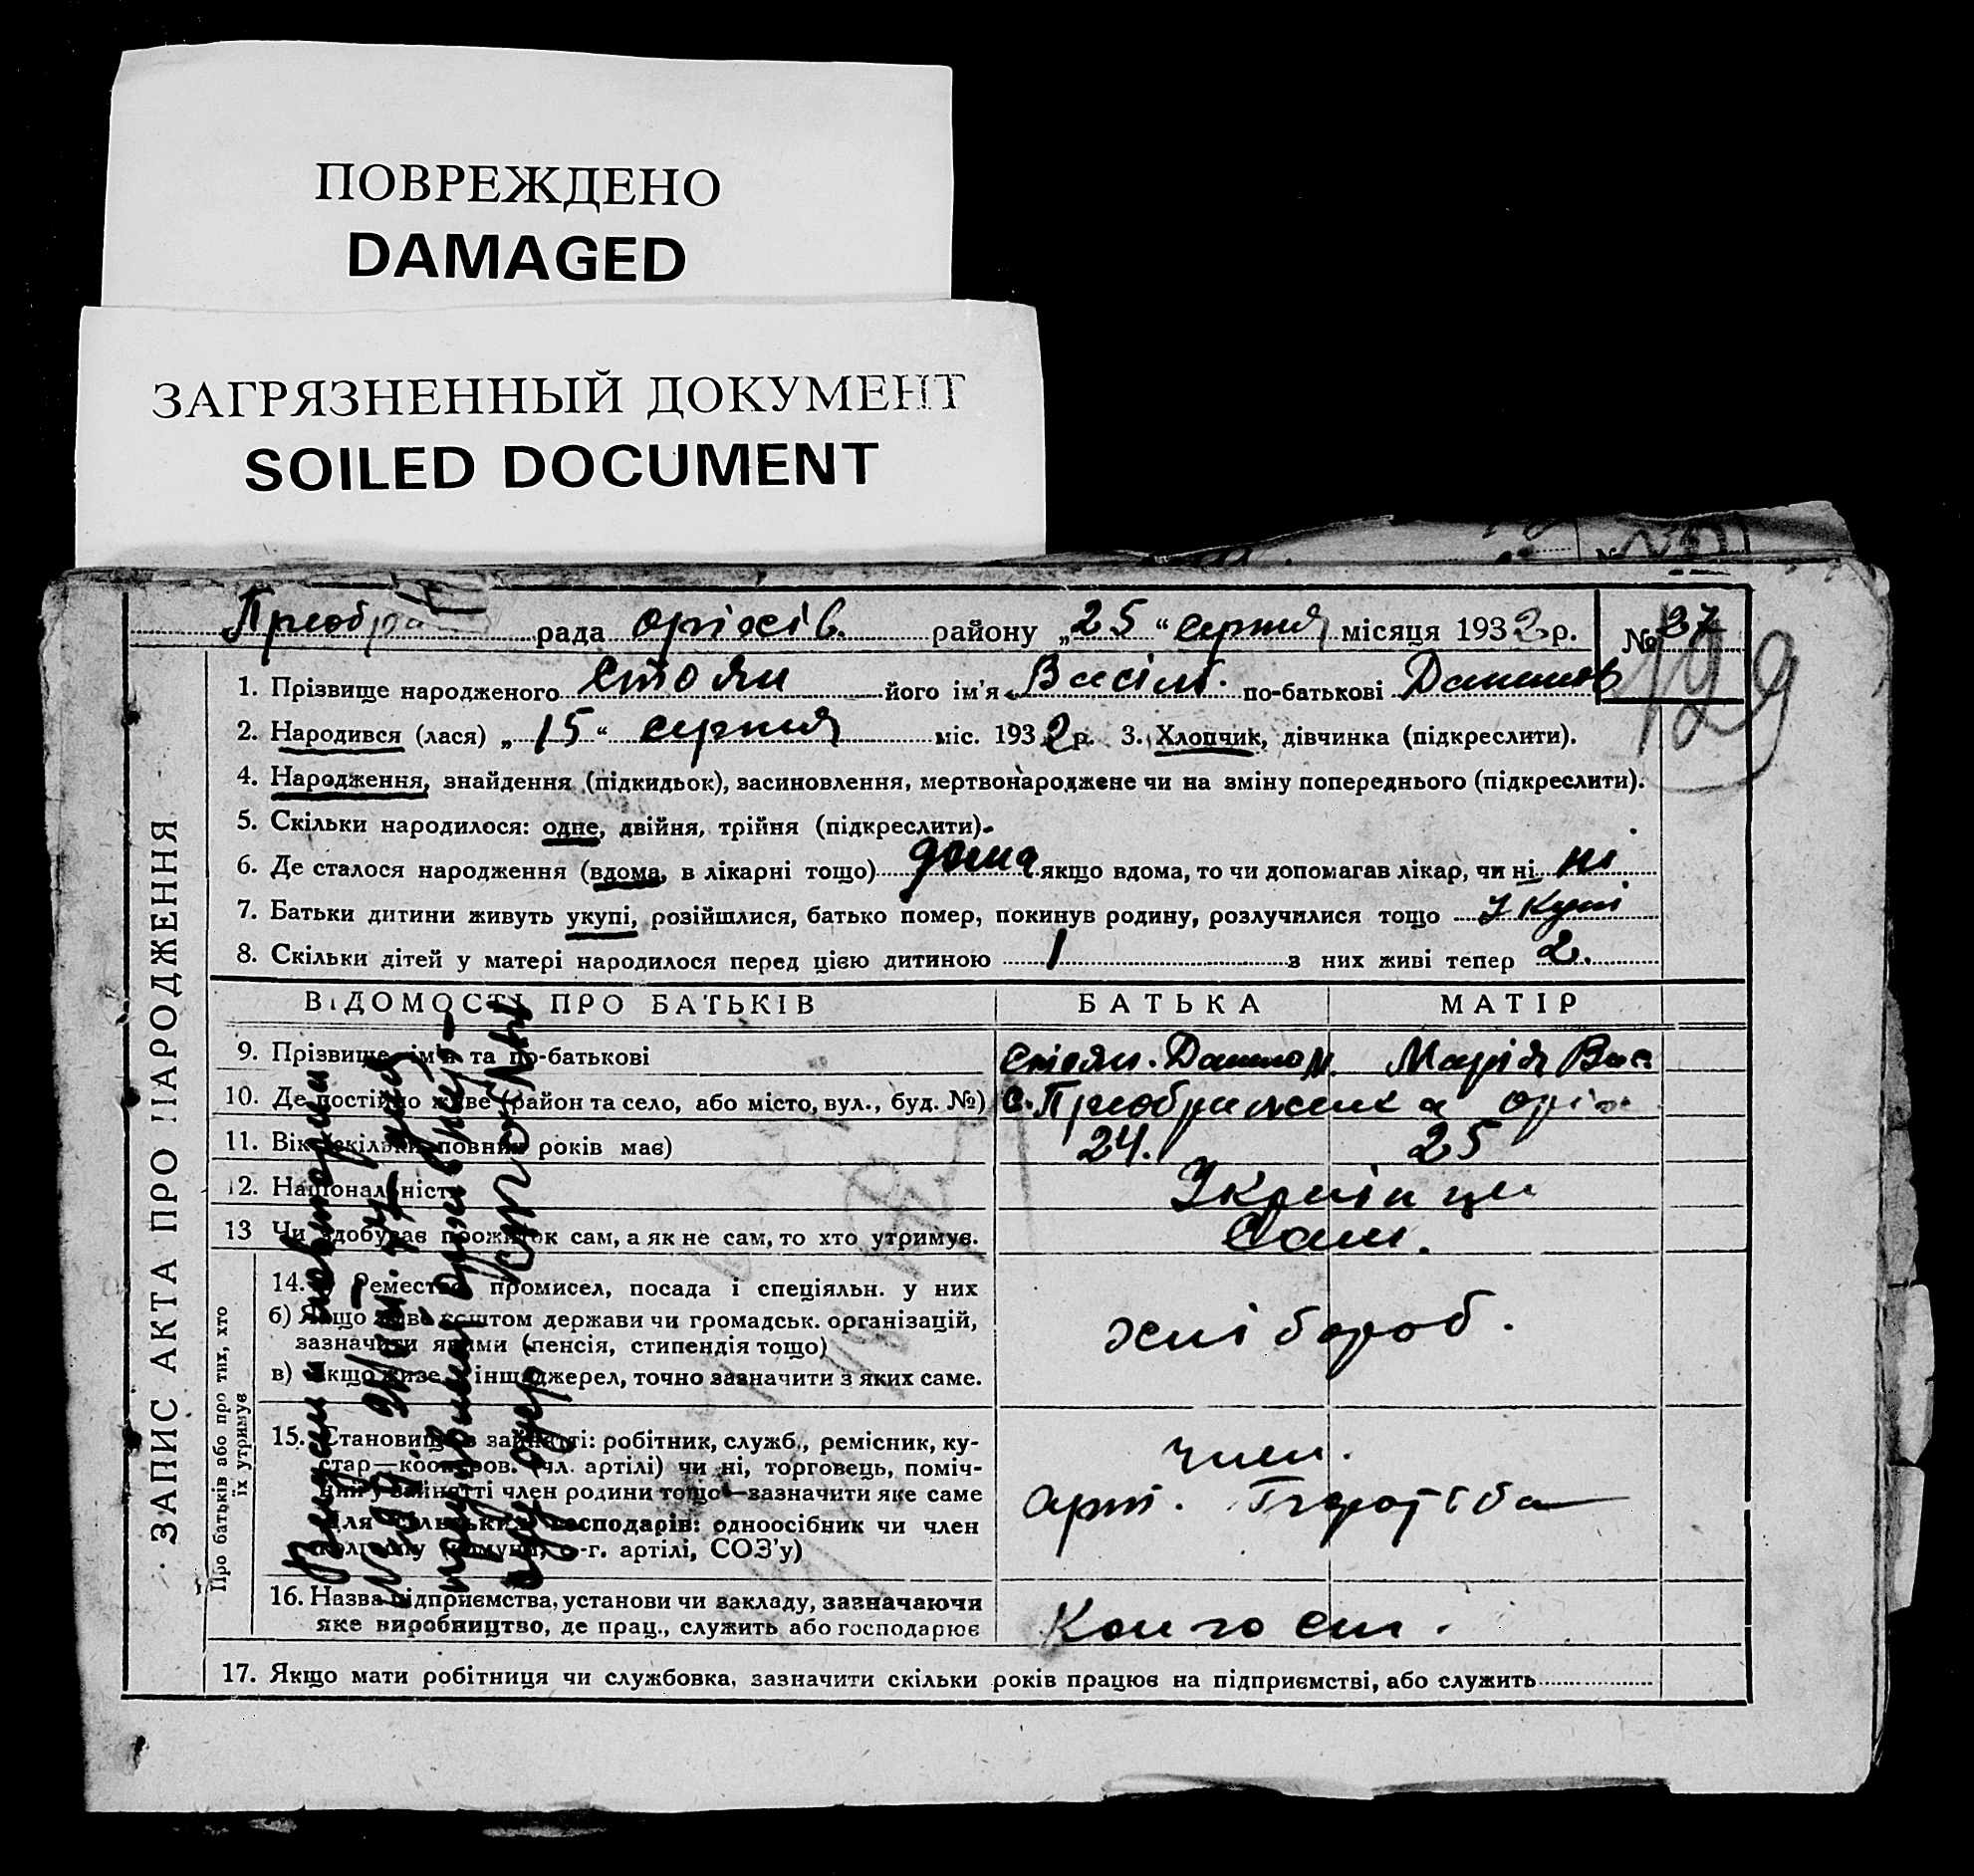 ПОВРЕЖДЕНО
DAMAGED
ЗАГРЯЗНЕННЫЙ ДОКУМЕНТ
SOILED DOCUMENT
Преобра рада оріхів. району „25“ серпня місяця 1932 р. № 37
129
ЗАПИС АКТА ПРО НАРОДЖЕННЯ
1. Прізвище народженого Стоян його ім'я Васіл. по-батькові Данилов
2. Народився (лася) „15“ серпня міс. 1932 р. 3. Хлопчик, дівчинка (підкреслити).
4. Народження, знайдення (підкидьок), засиновлення, мертвонароджене чи на зміну попереднього (підкреслити).
5. Скільки народилося: одне, двійня, трійня (підкреслити).
6. Де сталося народження (вдома, в лікарні тощо) дома якщо вдома, то чи допомагав лікар, чи ні ні
7. Батьки дитини живуть укупі, розійшлися, батько помер, покинув родину, розлучилися тощо укупі
8. Скільки дітей у матері народилося перед цією дитиною 1 з них живі тепер 2.
ВІДОМОСТІ ПРО БАТЬКІВ БАТЬКА МАТІР
9. Прізвище, ім'я та по-батькові Стоян. Данило М. Марія Вас
10. Де постійно живе (район та село, або місто, вул., буд. №) с. Преображенка оріх
11. Вік (скільки повних років має) 24. 25
12. Національність Украінци
13 Чи здобуває прожиток сам, а як не сам, то хто утримує. Сам.
Про батьків або про тих, хто їх утримує
14. Ремество, промисел, посада і спеціяльн. у них
б) Якщо живе коштом держави чи громадськ. організацій,
зазначити якими (пенсія, стипендія тощо)
в) Якщо живе з інш. джерел, точно зазначити з яких саме.
хлібороб.
15. Становище в занятті: робітник, служб., ремісник, ку-
стар—кооперов. (чл. артілі) чи ні, торговець, поміч-
ний у занятті член родини тощо—зазначити яке саме
Для сільських господарів: одноосібник чи член
колгоспу (комуни, с-г. артілі, СОЗ'у)
член.
арт.
16. Назва підприємства, установи чи закладу, зазначаючи
яке виробництво, де прац., служить або господарює
Колгосп.
17. Якщо мати робітниця чи службовка, зазначити скільки років працює на підприємстві, або служить